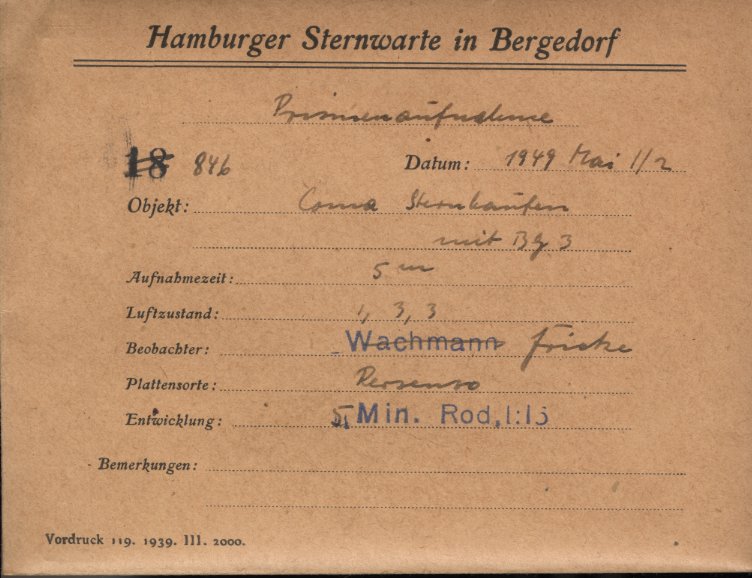 Hamburger Sternwarte in Bergedorf
Prismenaufnahme
18 846 Datum: 1949 Mai 1/2
Objekt: Coma Sternhaufen
mit Bg 3
Aufnahmezeit: 5 m
Luftzustand: 1, 3, 3
Beobachter: Wachmann Fricke
Plattensorte: Persenso
Entwicklung: 5 Min. Rod, 1:15
Bemerkungen:
Vordruck 119. 1939. III. 2000.